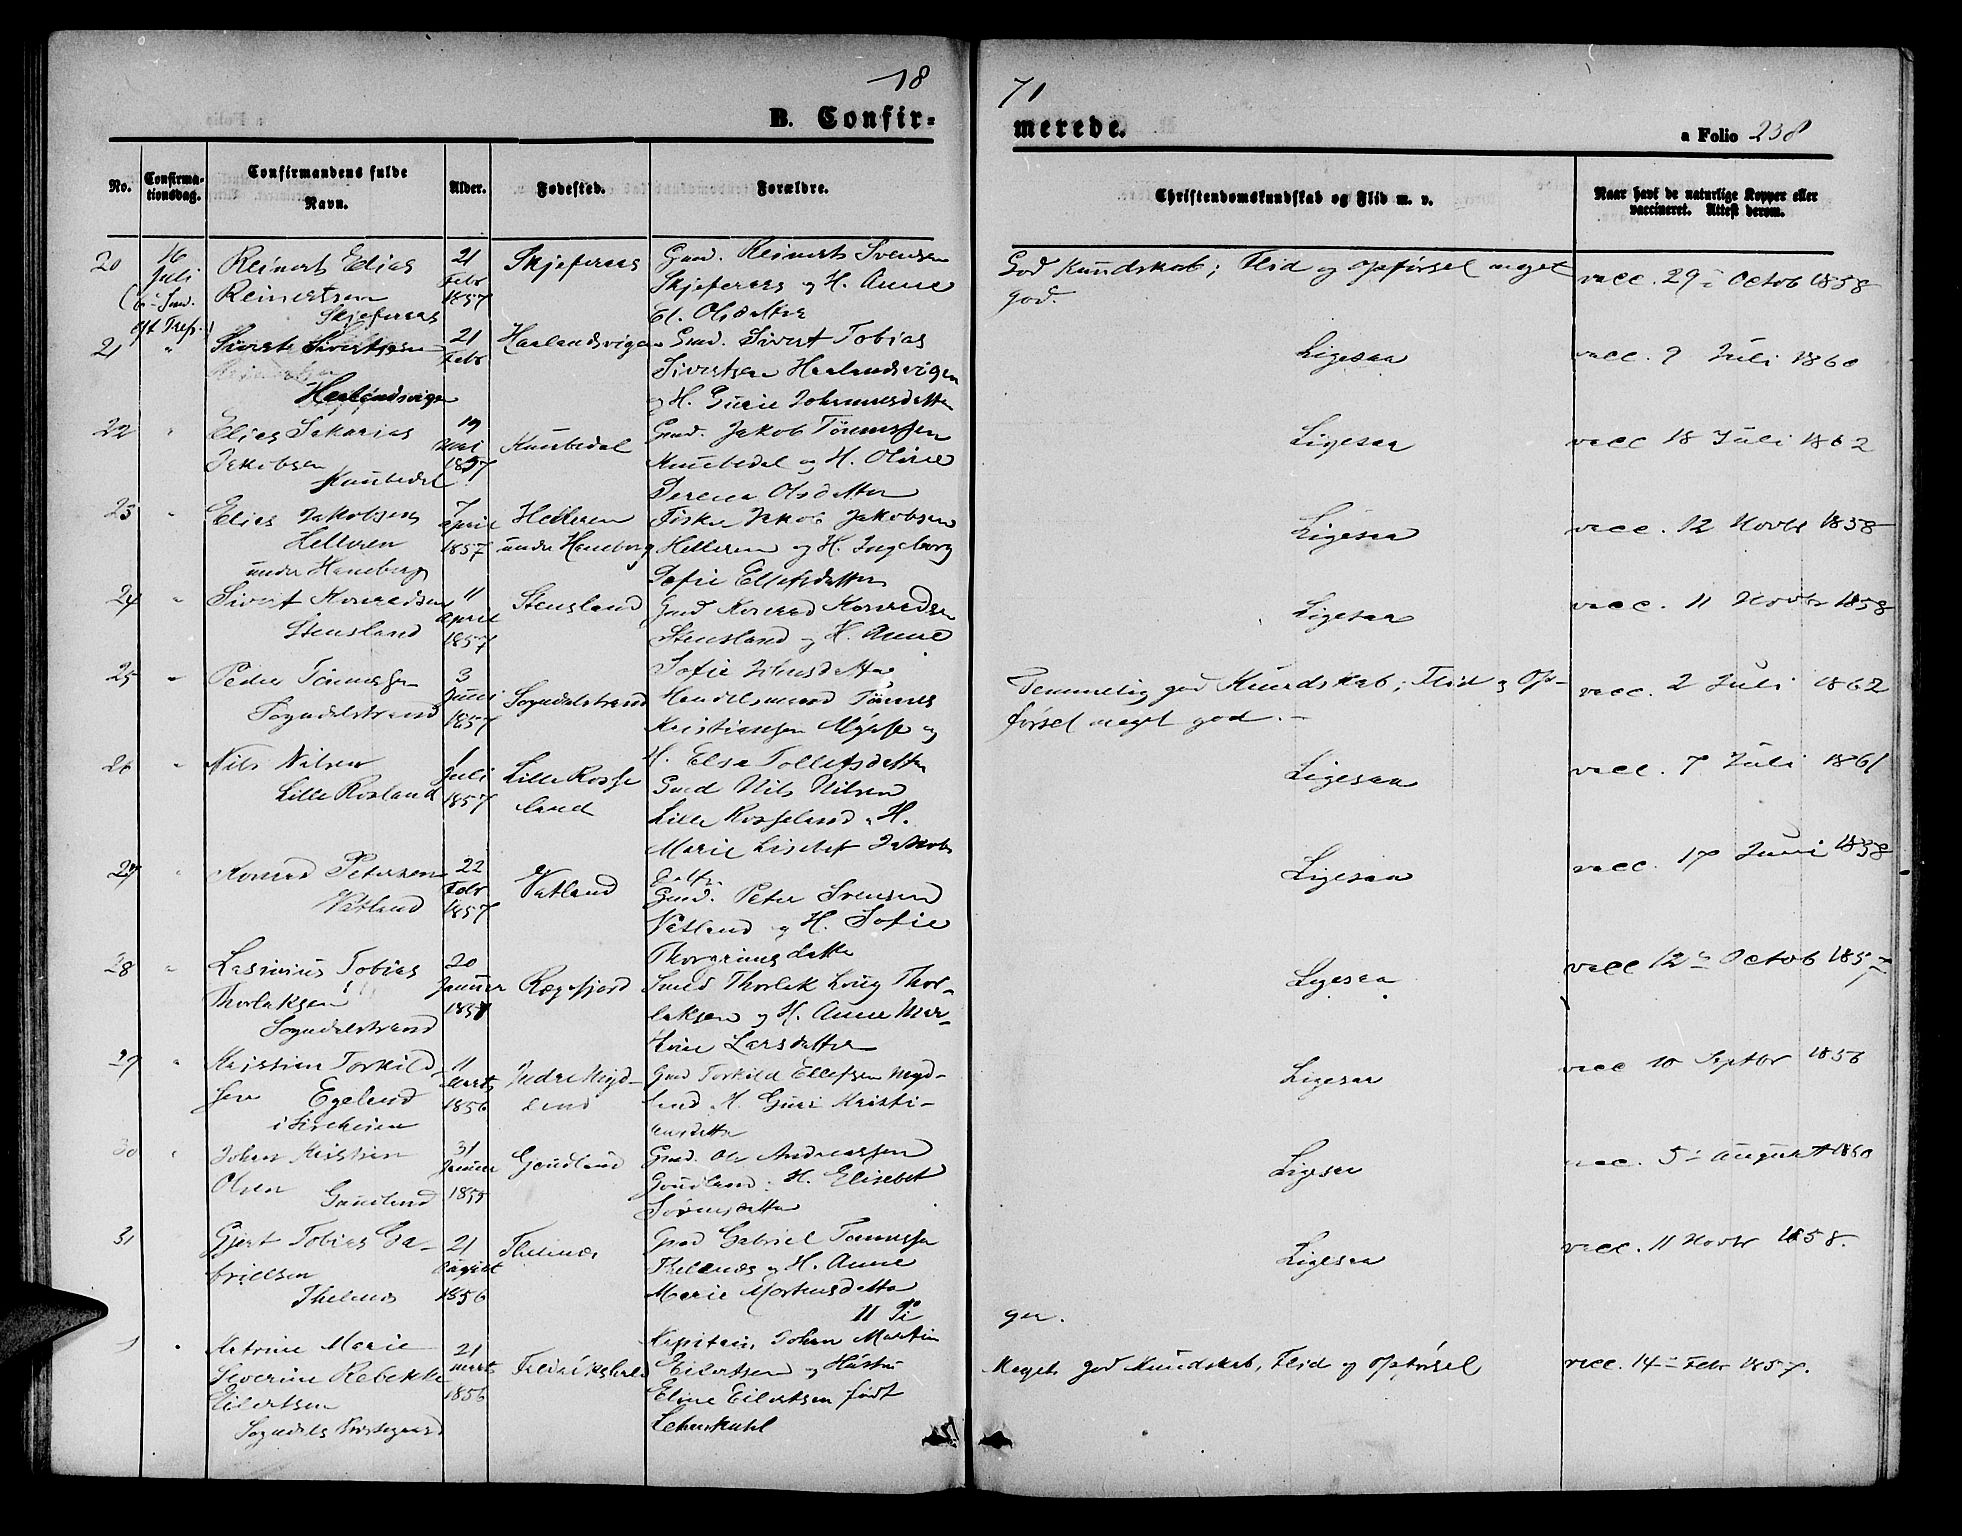 18
71
B. Confir=
merede.
a Folio 238
No.
Confirma-
tionsdag.
Confirmandens fulde
Navn.
Alder.
Fødested.
Forældre.
Christendomskundskab og Flid m. v.
Naar havt de naturlige Kopper eller
vaccineret. Attest derom.
20
16
Juli
(6te Sønd.
eft Tref.)
Reinert Elias
Reinertsen
Skjeferaas
21
Febr
1857
Skjeferaas
Gmd. Reinert Svensen
Skjeferaas og H. Anne
El. Olsdatter
God Kundskab; Flid og Opførsel meget
god.
vacc. 29de Octob 1858
21
"
Sivert Sivertsen
Haalandsvigen
21
Febr
Haalandsvigen
Gmd. Sivert Tobias
Sivertsen Haalandsvigen
og H. Gurie Johannesdatter
Ligesaa
vacc. 9 Juli 1860
22
"
Elias Sakarias
Jakobsen
Knubedal
19
Mai
1857
Knubedal
Gmd. Jakob Tønnessen
Knubedal og H. Oline
Serena Olsdatter
Ligesaa
vacc 18 Juli 1862
23
"
Elias Jakobsen
Helleren
under Haneberg
7
April
1857
Helleren
under Haneberg
Fisker Jakob Jakobsen
Helleren og H. Ingeborg
Sofie Ellefsdatter
Ligesaa
vacc. 12 Novbr 1858
24
"
Sivert Konradsen
Stensland
11
April
1857
Stensland
Gmd Konrad Konradsen
Stensland og H. Anne
Sofie Johnsdatter
Ligesaa
vacc. 11 Novbr 1858
25
"
Peder Tønnessen
Sogndalstrand
3
Juni
1857
Sogndalstrand
Handelsmand Tønnes
Kristiansen og
H. Elsa Tollefsdatter
Temmelig god Kundskab; Flid og Op-
førsel meget god.-
vacc. 2 Juli 1862
26
"
Nils Nilsen
Lille Rosland
1
Juli
1857
Lille Rosse
land
Gmd Nils Nilsen
Lille Rosseland og H.
Marie Lisebet Jakobs
datter
Ligesaa
vacc. 7 Juli 1861
27
"
Konrad Petersen
Vatland
22
Febr
1857
Vatland
Gmd. Peter Svensen
Vatland og H. Sofie
Thorgrimsdatter
Ligesaa
vacc. 17 Juni 1858
28
"
Lasinius Tobias
Thorlaksen
Sogndalstrand
20
Januar
1857
Rægefjord
Smed Thorlak Thor-
laksen og H. Anne Mar-
thine Larsdatter
Ligesaa
vacc 12te Octob 1857
29
"
Kristian Torkild-
sen Egeland
i Kirkeveien
11
Marts
1856
Indre Myd-
land
Gmd Torkild Ellefsen Myd-
land H. Guri Kristi-
ansdatter
Ligesaa
vacc 10 Septbr 1856
30
"
Johan Kristian
Olsen
Gaudland
31
Januar
1855
Gaudland
Gmd. Ole Andreassen
Goudland: H. Elisebet
Sørensdatter
Ligesaa
vacc. 5te August 1860
31
Gjert Tobias Ga-
brielsen
Thelnes
21
August
1856
Thelnes
Gmd Gabriel Tønnessen
Thelnes og H. Anne
Marie Mortensdatter
Ligesaa
vacc. 11 Novbr 1858.
11 Pi
ger.
1
"
Katrine Marie
Severine Rebekke
Eilertsen
Sogndals Præstegaard
21
Marts
1856
Kapitain Johan Martin
Eilertsen og Hustru
Eline Eilertsen født
Lehmkuhl
Meget god Kundskab, Flid og Opførsel
vacc. 14de Febr 1857.